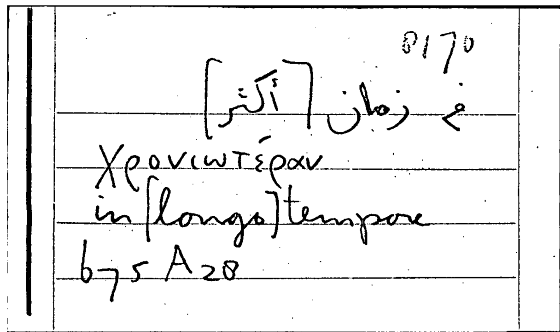 0170
في زمان [أكثر]
χρονιωτέραν
in [longo] tempore
b75 A28